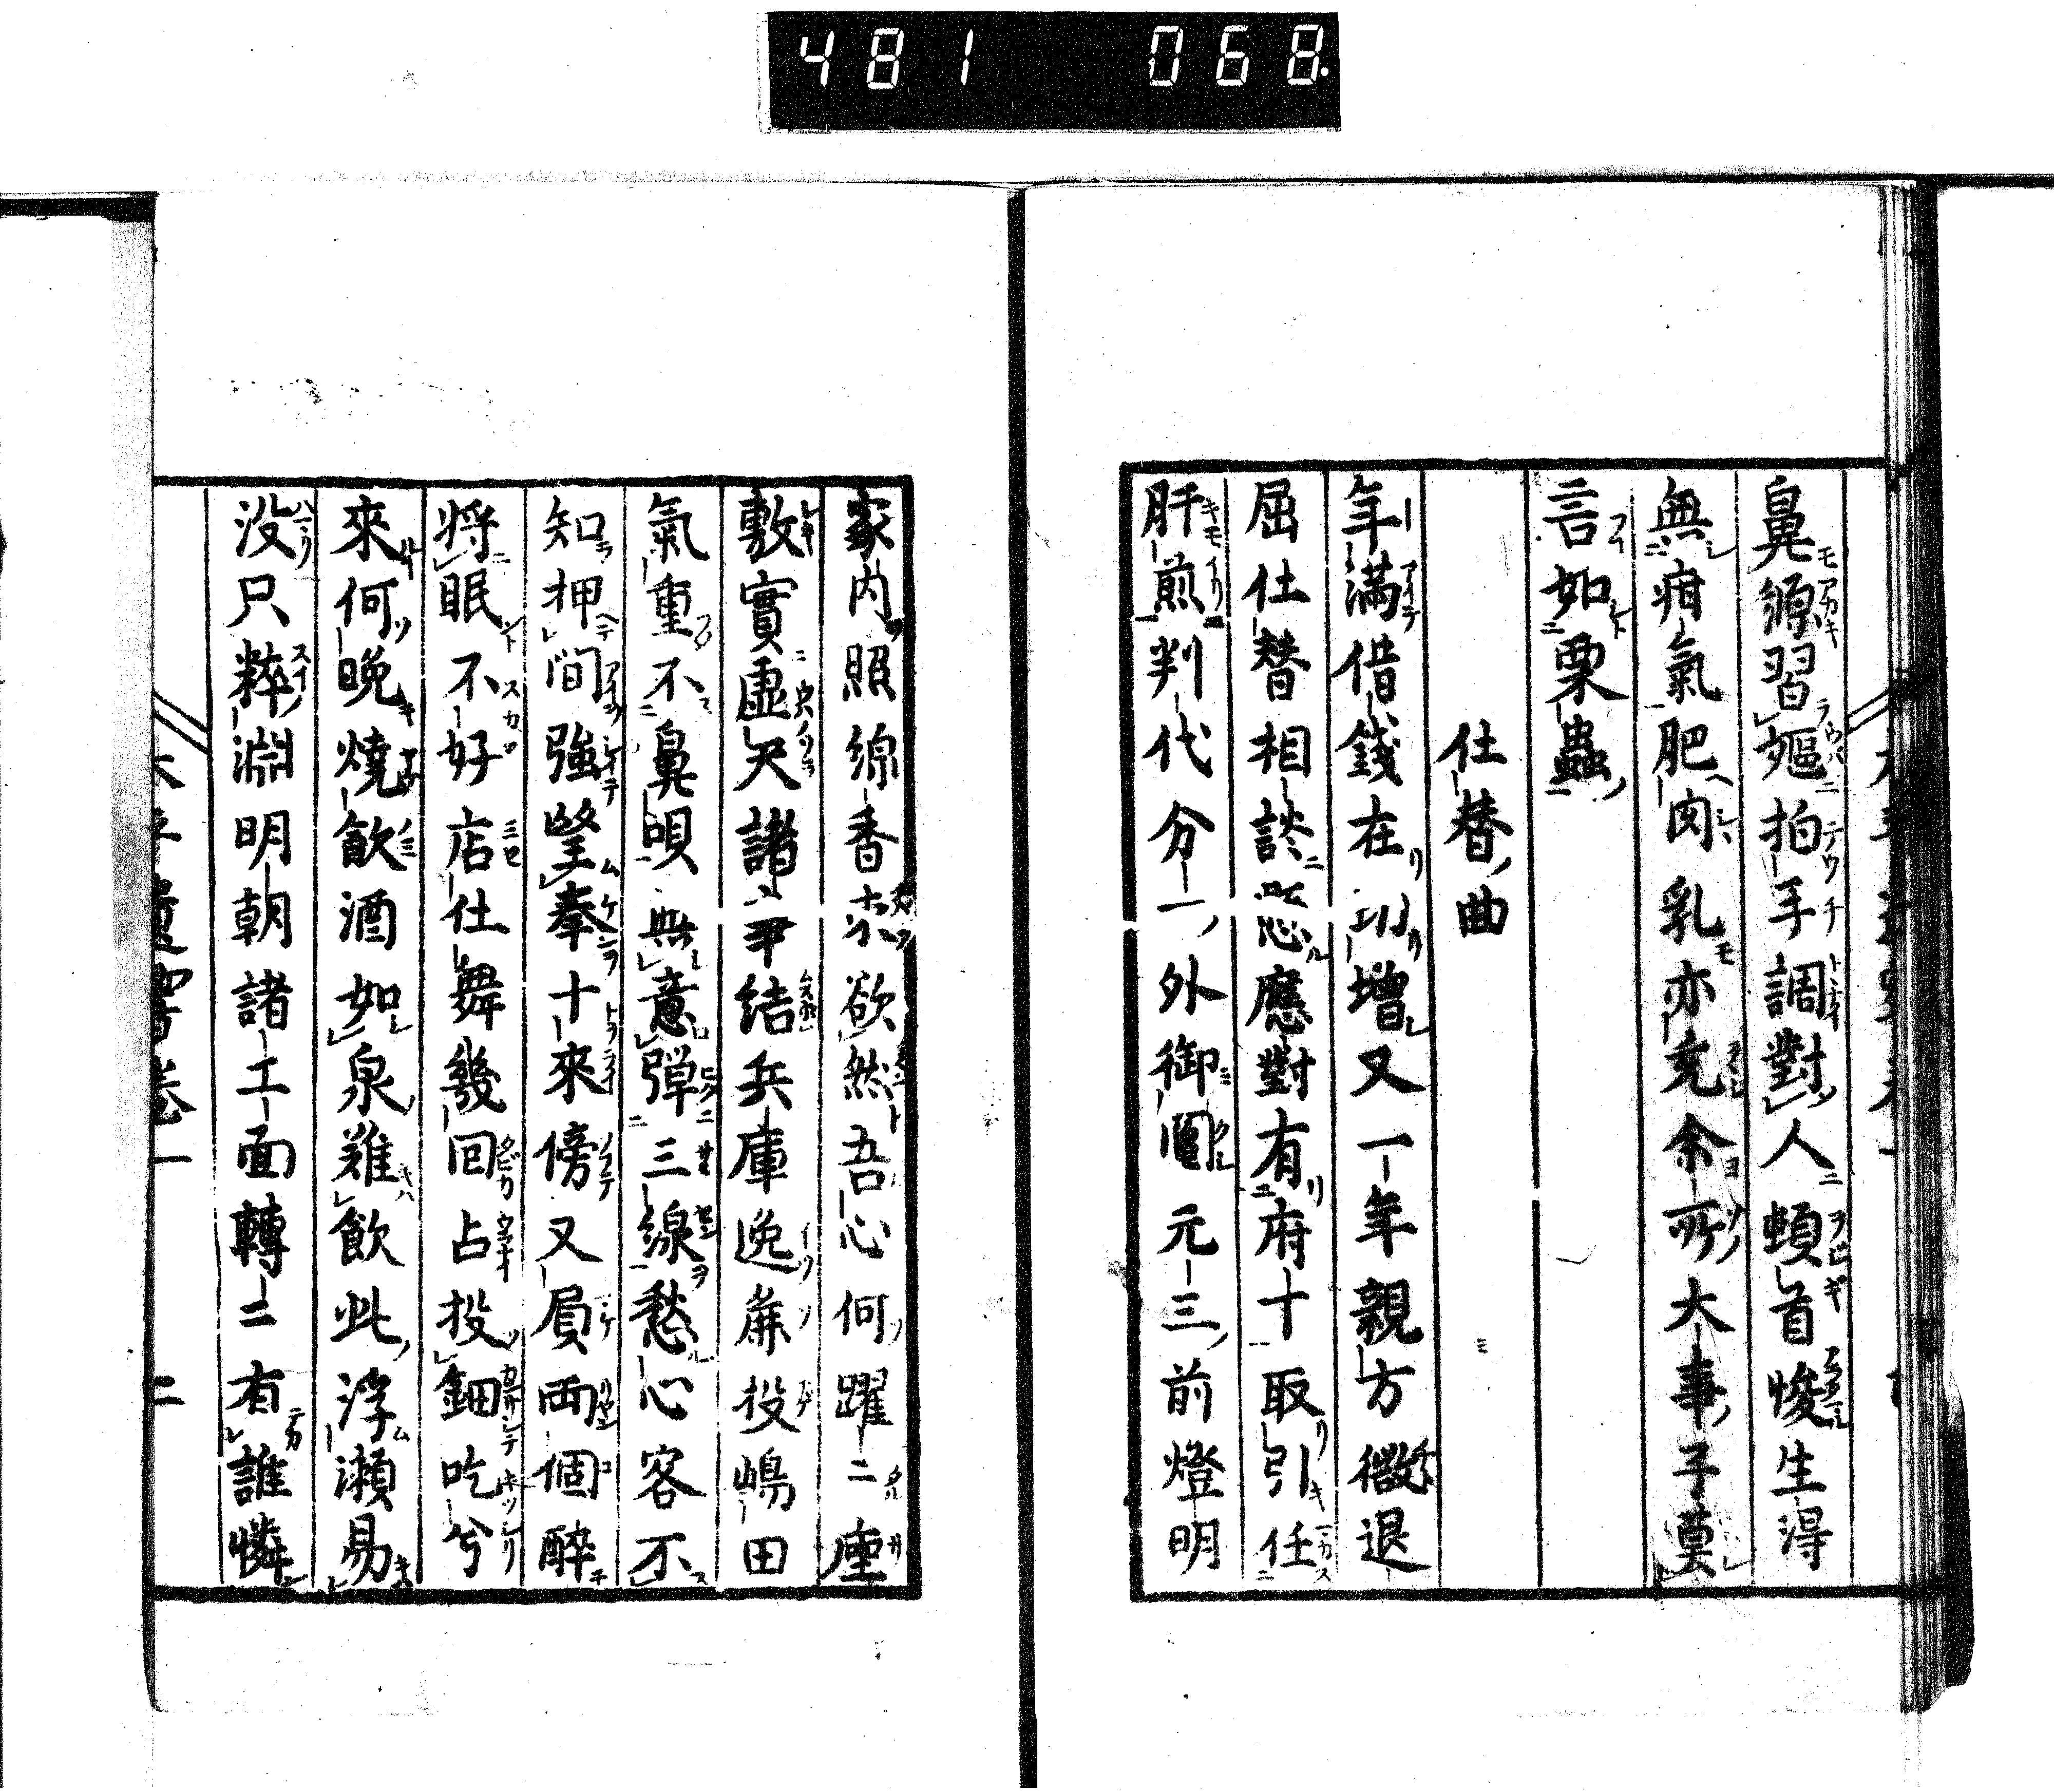 481 068
鼻縁習嫗拍手調對人頓首悛生得
無疳氣肥肉乳亦充余所大事子莫
言如栗蟲
仕替曲
年滿借錢在功增又一年親方徴退
屈仕替相談忽應對有府十取引任
肝煎判代分一外御圖元三前燈明
家内照線香求欲然吾心何躍二座
敷實虛天諸士尹結兵庫逸麻投嶋田
氣重不鼻唄無意彈三線愁心客不
知押間強望奉十來傍又屓兩個醉
將眠不好店仕舞幾回占投鈿吃兮
來何晚燒飲酒如泉難飲此浮瀬易
没只粹淵明朝諸工面轉二有誰憐
太平樂府卷一 二